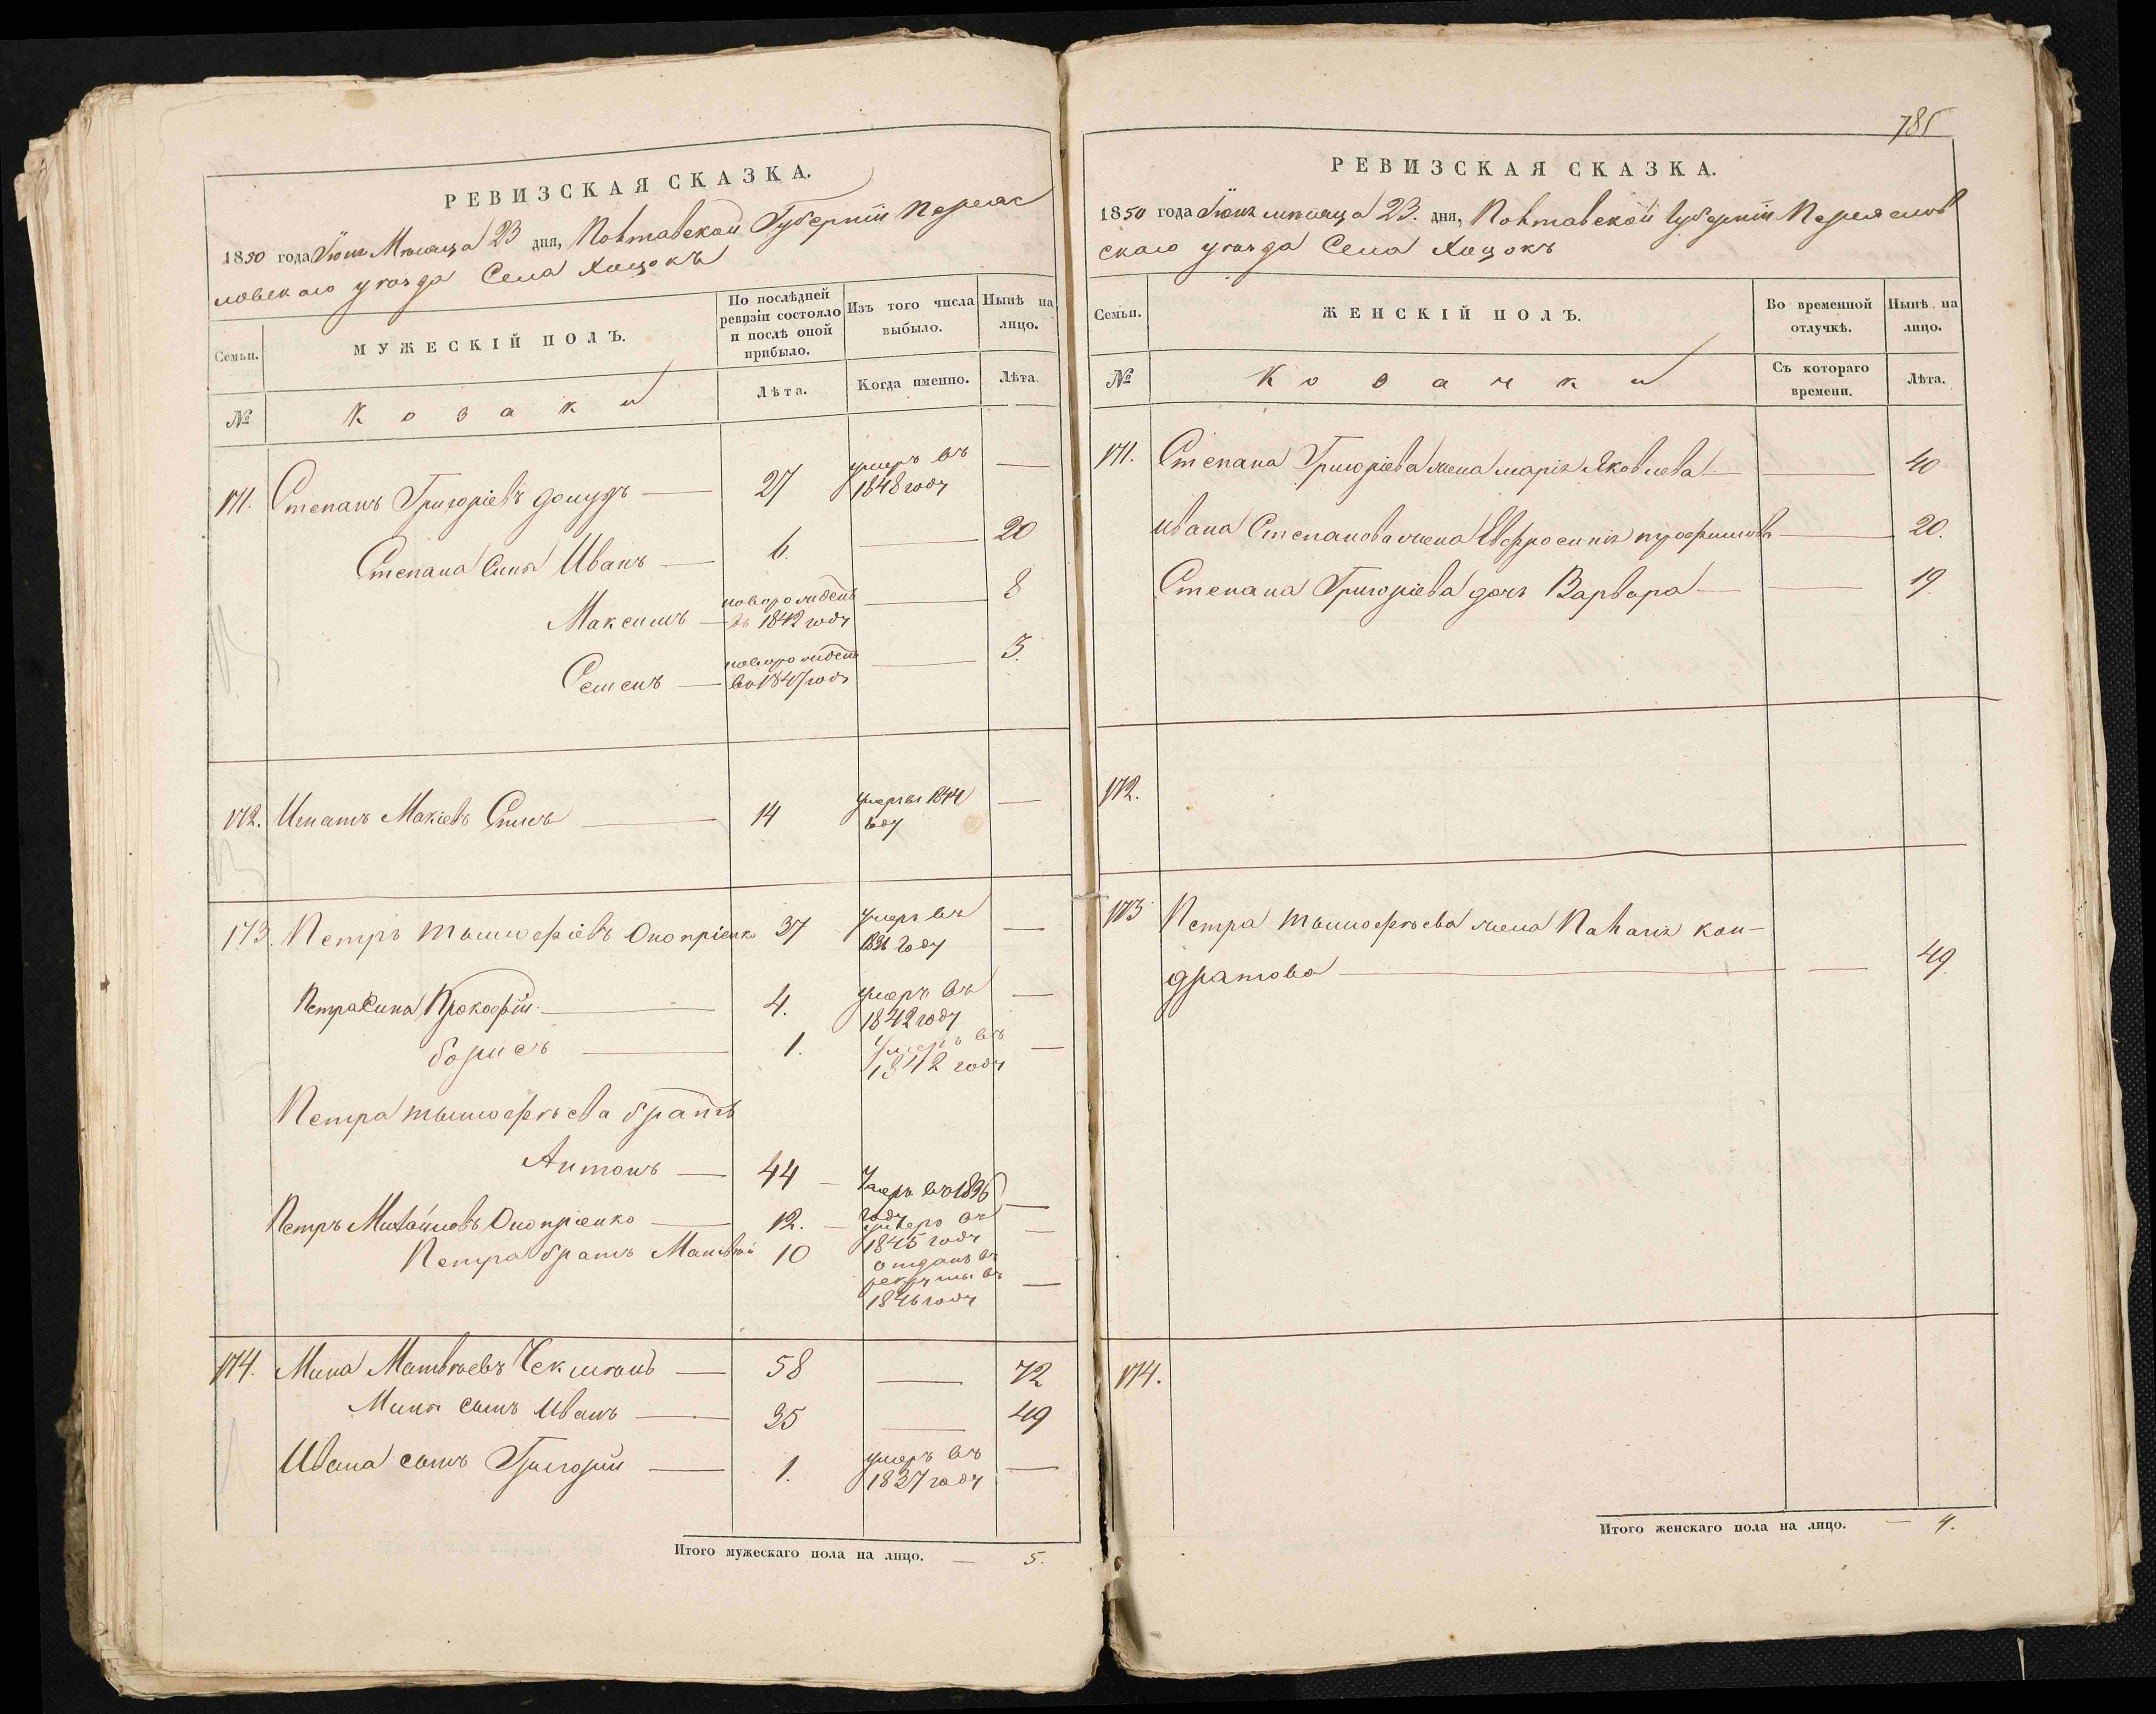 РЕВИЗСКАЯ СКАЗКА.
1850 года Іюня Мѣсяца 23 дня, Полтавской Губерніи Переяс
ловскаго уѣзда Села Хоцокъ
Семьи.
МУЖЕСКІЙ ПОЛЪ.
По послѣдней ревизіи состояло и послѣ оной прибыло.
Изъ того числа выбыло.
Нынѣ на лицо.
№
Козаки
Лѣта.
Когда именно.
Лѣта.
171. Степанъ Григоріевъ 27 умеръ въ 1848 году —
Степана Сынъ Иванъ — 6. — 20
Максимъ — новорожденъ въ 1842 году — 8
Семенъ — новорожденъ въ 1847 году — 3.
172. Игнатъ Макіевъ — 14 умеръ въ 1844 году —
173. Петръ Тымофіевъ Оноприенко 37 умеръ въ году —
Петра Сына Прокофій — 4. умеръ въ 1842 году —
борисъ — 1. умеръ въ 1842 году —
Петра тымофѣева братъ
Антонъ — 44 — Умеръ въ 1836 году —
Петръ Михайловъ Оноприенко — 12. — умеръ въ 1845 году —
Петра братъ Матвѣй 10 отданъ въ рекруты въ 1846 году —
174. Мина Матвѣевъ — 58 — 72
Мины сынъ Иванъ — 35 — 49
Ивана сынъ Григорій — 1. умеръ въ 1837 году —
Итого мужескаго пола на лицо. — 5.
785
РЕВИЗСКАЯ СКАЗКА.
1850 года Іюня мѣсяца 23. дня, Полтавской Губерніи Переяслов
скаго уѣзда Села Хоцокъ
Семьи.
ЖЕНСКІЙ ПОЛЪ.
Во временной отлучкѣ.
Нынѣ на лицо.
№
Козачки
Съ котораго времени.
Лѣта.
171. Степана Григоріева жена марія Яковлева — — 40
ивана Степанова жена Евфросинія трофимова — 20.
Степана Григоріева дочь Варвара — — 19.
172.
173 Петра тымофѣева жена Палагія кон-
дратова — — 49.
174.
Итого женскаго пола на лицо. — 4.